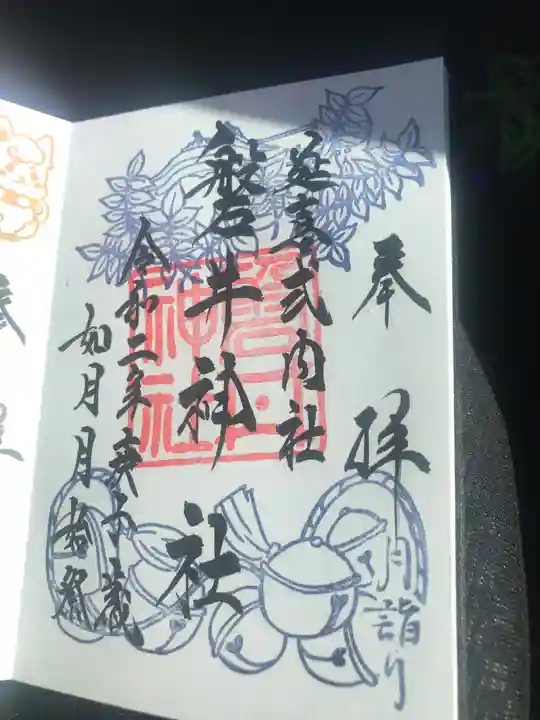 奉拝
月詣り
延喜式内社
磐井神社
令和二年庚子歳
如月
磐井神社